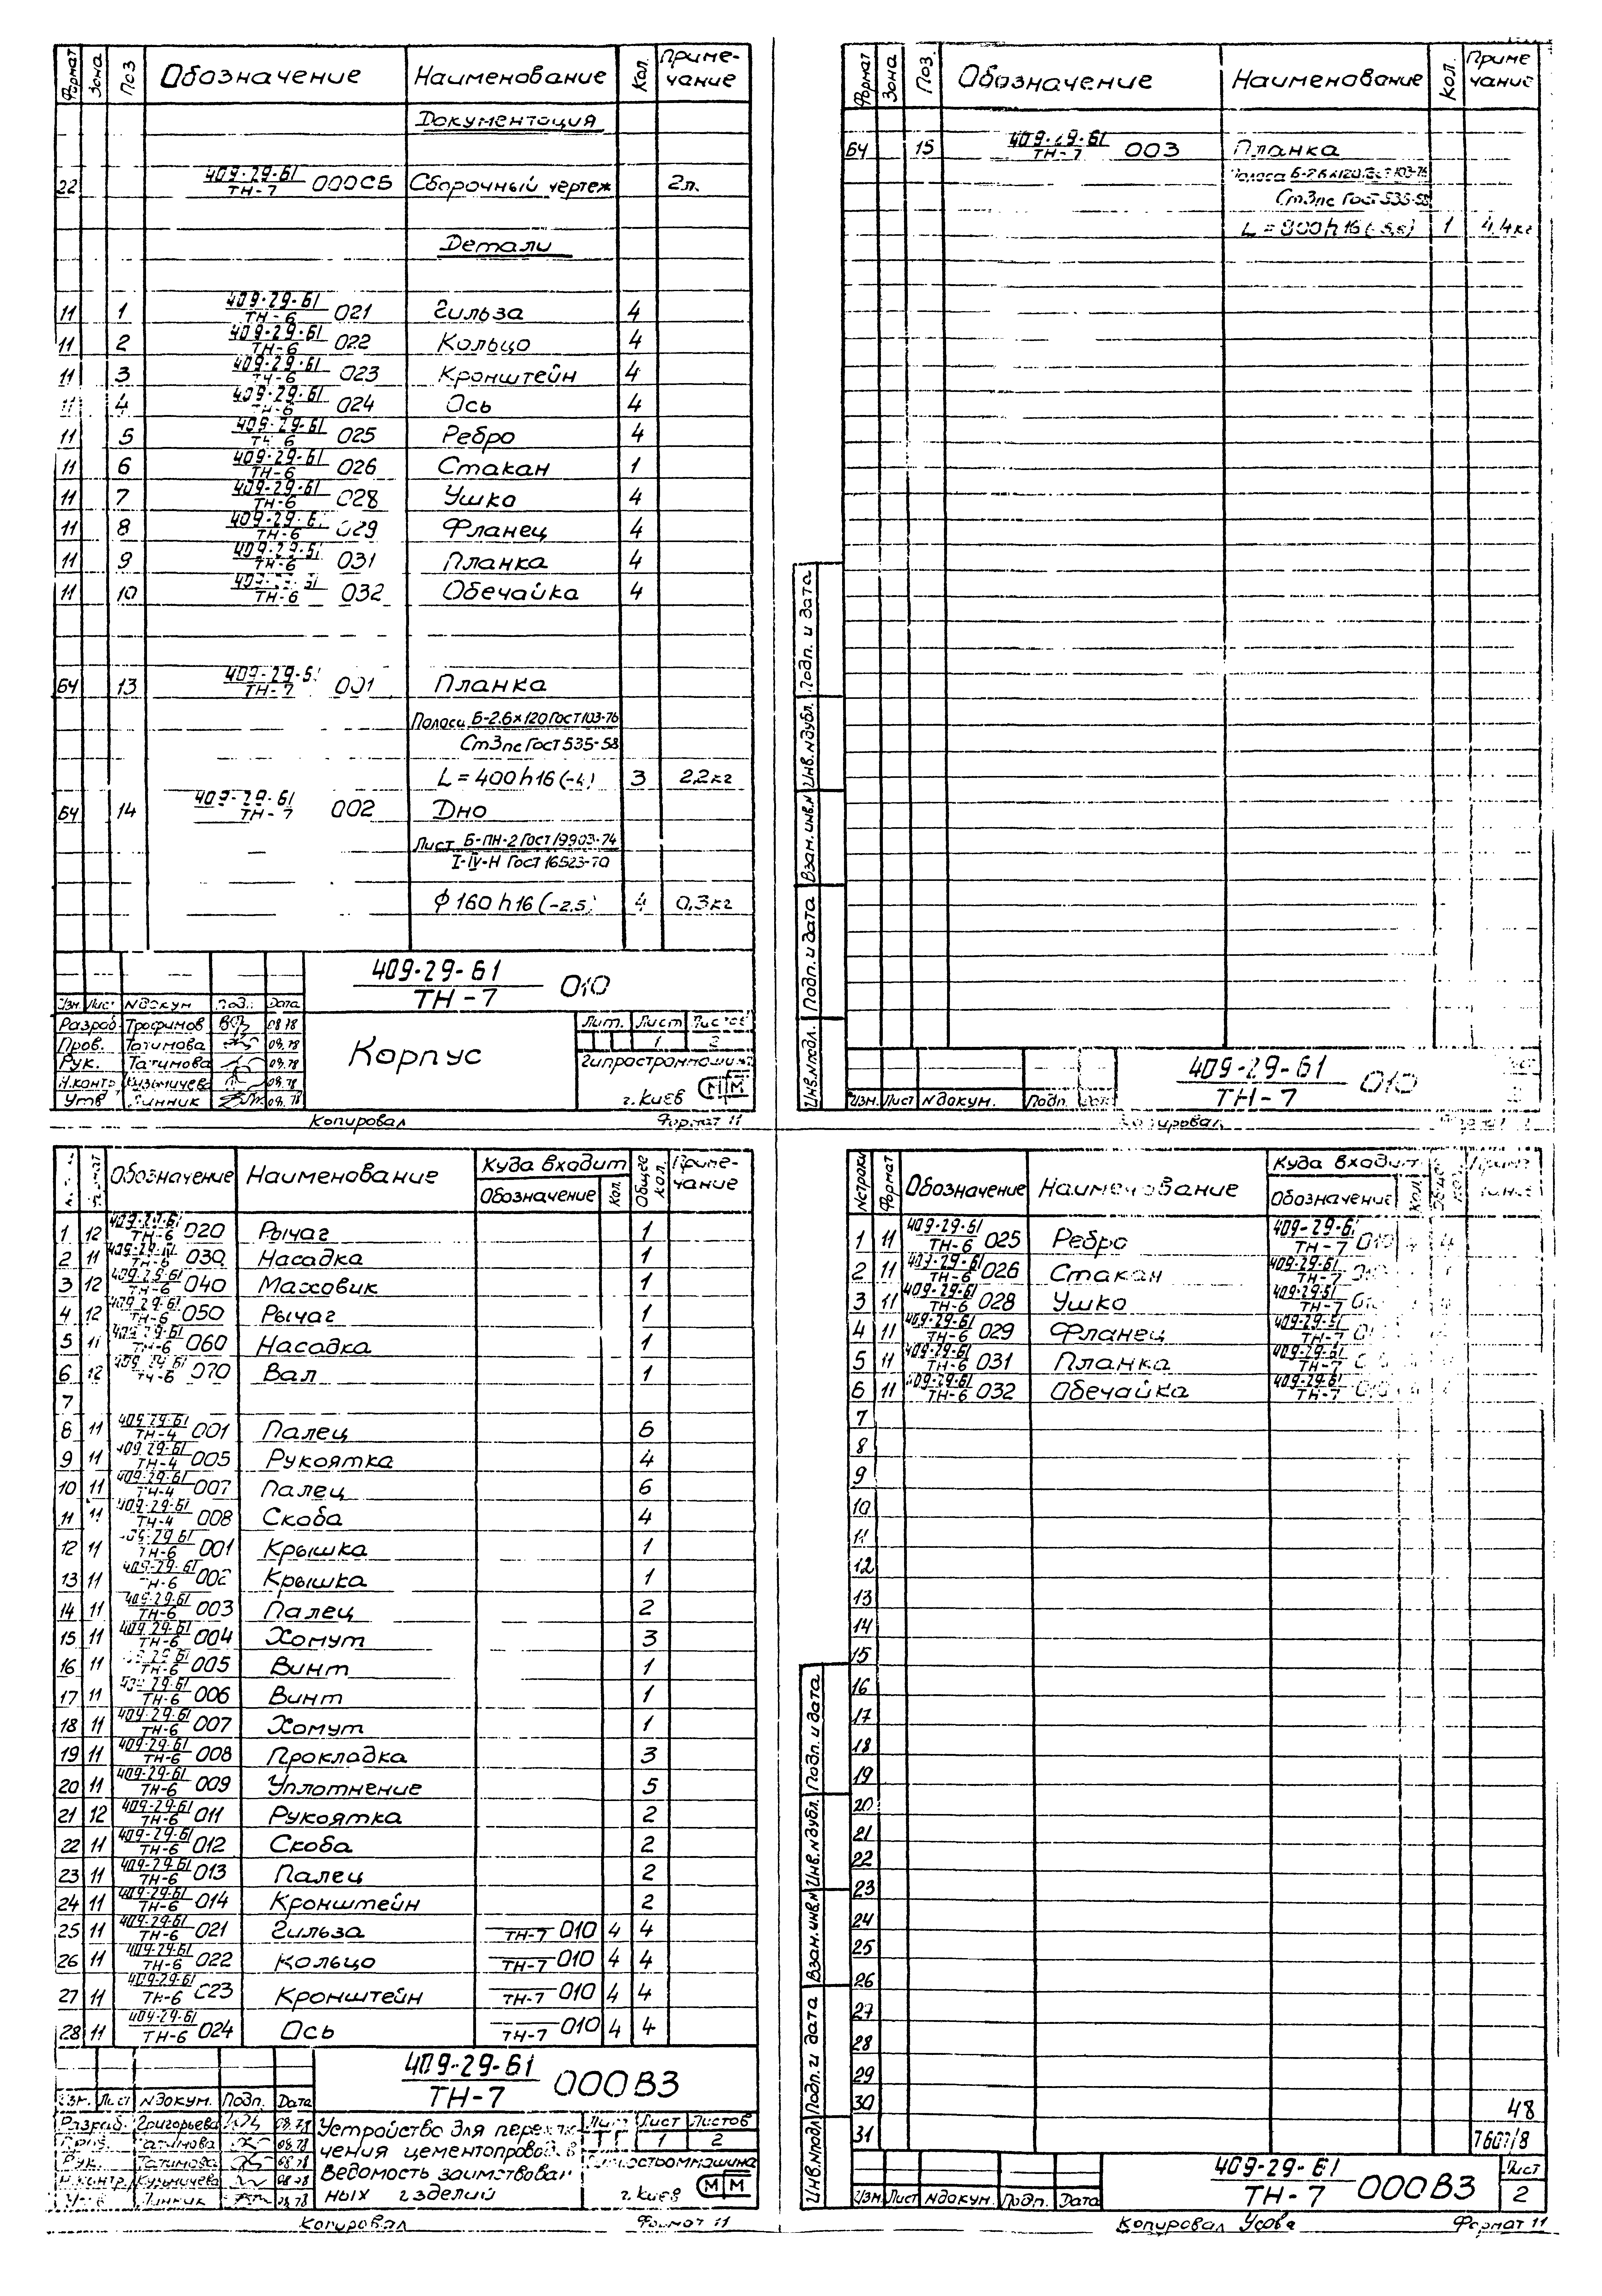 Формат Зона Поз Обозначение Наименование Кол. Примечание
Документация
22 409-29-61/ТН-7 000СБ Сборочный чертеж 2л.
Детали
11 1 409-29-61/ТН-6 021 Гильза 4
11 2 409-29-61/ТН-6 022 Кольцо 4
11 3 409-29-61/ТН-6 023 Кронштейн 4
11 4 409-29-61/ТН-6 024 Ось 4
11 5 409-29-61/ТН-6 025 Ребро 4
11 6 409-29-61/ТН-6 026 Стакан 1
11 7 409-29-61/ТН-6 028 Ушко 4
11 8 409-29-61/ТН-6 029 Фланец 4
11 9 409-29-61/ТН-6 031 Планка 4
11 10 409-29-61/ТН-6 032 Обечайка 4
БЧ 13 409-29-61/ТН-7 001 Планка
Полоса Б-2.6×120 Гост 103-76
Ст3пс Гост 535-58
L=400h16(-4) 3 2,2кг
БЧ 14 409-29-61/ТН-7 002 Дно
Лист Б-ПН-2 Гост 19903-74
I-IV-Н Гост 16523-70
ф160h16(-2.5) 4 0,3кг
409-29-61/ТН-7 010
Изм. Лист N докум Под. Дата
Разраб Трофимов 08.78
Пров. Татимова 08.78
Рук. Татимова 08.78
Н.контр Кузьмичева 08.78
Утв Линник 08.78
Корпус
Лит. Лист Листов
1 2
Гипростроммашина
г.Киев
ММ
Копировал Формат 11
Формат Зона Поз. Обозначение Наименование Кол. Примечание
БЧ 15 409-29-61/ТН-7 003 Планка
Полоса Б-2.6×120 Гост 103-76
Ст3пс Гост 535-58
L=800h16 1 4,4кг
Инв.Nподл. Подп. и дата Взам.инв.N Инв.Nдубл. Подп. и дата
Изм. Лист N докум. Подп. Дата
409-29-61/ТН-7 010
Копировал
Обозначение Наименование Куда входит Общее кол. Примечание
Обозначение Кол.
1 12 409-29-61/ТН-6 020 Рычаг 1
2 11 409-29-61/ТН-6 030 Насадка 1
3 12 409-29-61/ТН-6 040 Маховик 1
4 12 409-29-61/ТН-6 050 Рычаг 1
5 11 409-29-61/ТН-6 060 Насадка 1
6 12 409-29-61/ТН-6 070 Вал 1
7
8 11 409-29-61/ТН-4 001 Палец 6
9 11 409-29-61/ТН-4 005 Рукоятка 4
10 11 409-29-61/ТН-4 007 Палец 6
11 11 409-29-61/ТН-4 008 Скоба 4
12 11 409-29-61/ТН-6 001 Крышка 1
13 11 409-29-61/ТН-6 002 Крышка 1
14 11 409-29-61/ТН-6 003 Палец 2
15 11 409-29-61/ТН-6 004 Хомут 3
16 11 409-29-61/ТН-6 005 Винт 1
17 11 409-29-61/ТН-6 006 Винт 1
18 11 409-29-61/ТН-6 007 Хомут 1
19 11 409-29-61/ТН-6 008 Прокладка 3
20 11 409-29-61/ТН-6 009 Уплотнение 5
21 12 409-29-61/ТН-6 011 Рукоятка 2
22 11 409-29-61/ТН-6 012 Скоба 2
23 11 409-29-61/ТН-6 013 Палец 2
24 11 409-29-61/ТН-6 014 Кронштейн 2
25 11 409-29-61/ТН-6 021 Гильза ТН-7 010 4 4
26 11 409-29-61/ТН-6 022 Кольцо ТН-7 010 4 4
27 11 409-29-61/ТН-6 023 Кронштейн ТН-7 010 4 4
28 11 409-29-61/ТН-6 024 Ось ТН-7 010 4 4
409-29-61/ТН-7 000ВЗ
Изм. Лист N докум. Подп. Дата
Разраб. Григорьева 08.78
Пров. Татимова 08.78
Рук. Татимова 08.78
Н.контр. Кузьмичева 08.78
Утв Линник 08.78
Устройство для переклю-
чения цементопроводов
Ведомость заимствован-
ных изделий
Лит Лист Листов
1 2
Гипростроммашина
г.Киев
ММ
Копировал Формат 11
Nстроки Формат Обозначение Наименование Куда входит
Обозначение Кол. Общее кол. Примечание
1 11 409-29-61/ТН-6 025 Ребро 409-29-61/ТН-7 010 4 4
2 11 409-29-61/ТН-6 026 Стакан 409-29-61/ТН-7 010
3 11 409-29-61/ТН-6 028 Ушко 409-29-61/ТН-7
4 11 409-29-61/ТН-6 029 Фланец 409-29-61/ТН-7
5 11 409-29-61/ТН-6 031 Планка 409-29-61/ТН-7
6 11 409-29-61/ТН-6 032 Обечайка 409-29-61/ТН-7 010
7
8
9
10
11
12
13
14
15
16
17
18
19
20
21
22
23
24
25
26
27
28
29
30 48
31 7607/8
Инв.Nподл Подп. и дата Взам.инв.N Инв.Nдубл. Подп. и дата
Изм. Лист N докум. Подп. Дата
409-29-61/ТН-7 000ВЗ
Лист
2
Копировал Усова Формат 11